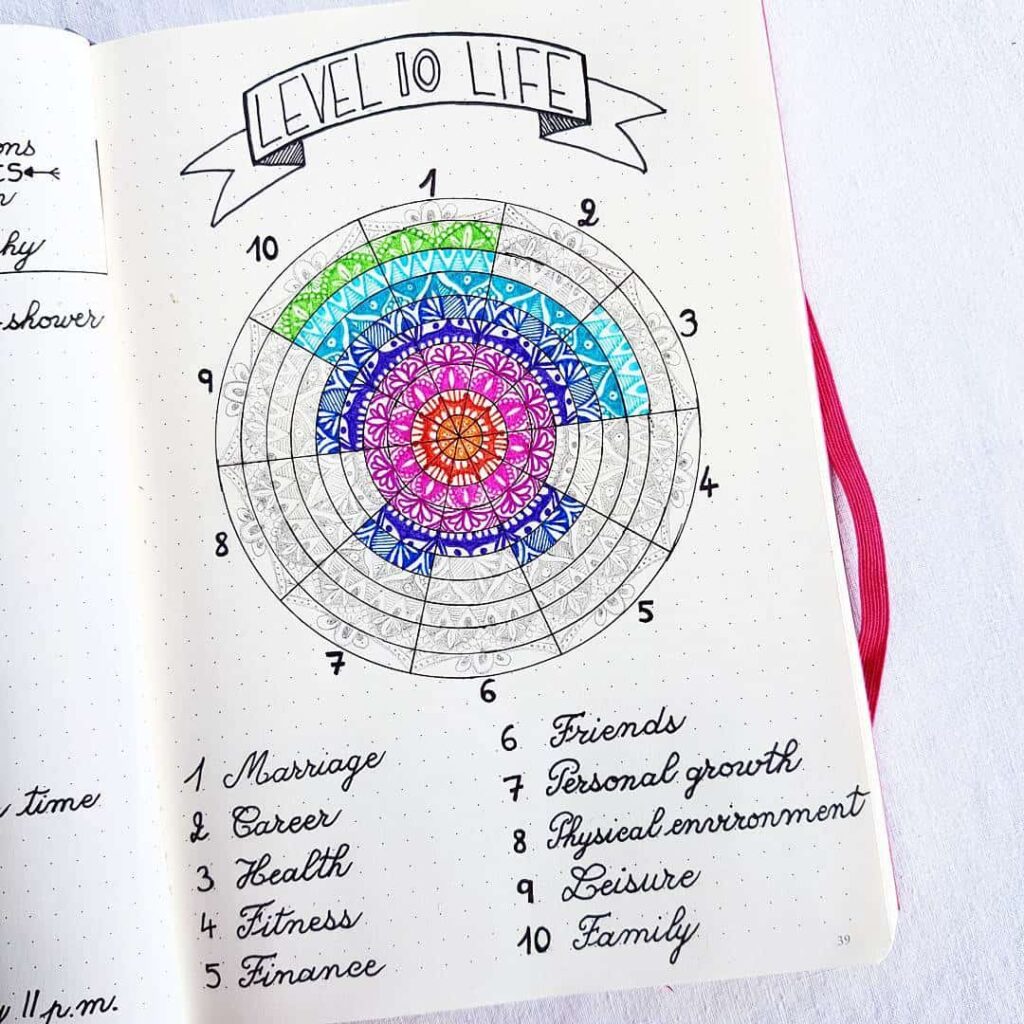 LEVEL 10 LIFE
1
2
3
4
5
6
7
8
9
10
1 Marriage
2 Career
3 Health
4 Fitness
5 Finance
6 Friends
7 Personal growth
8 Physical environment
9 Leisure
10 Family
39
shower
time
11 p.m.